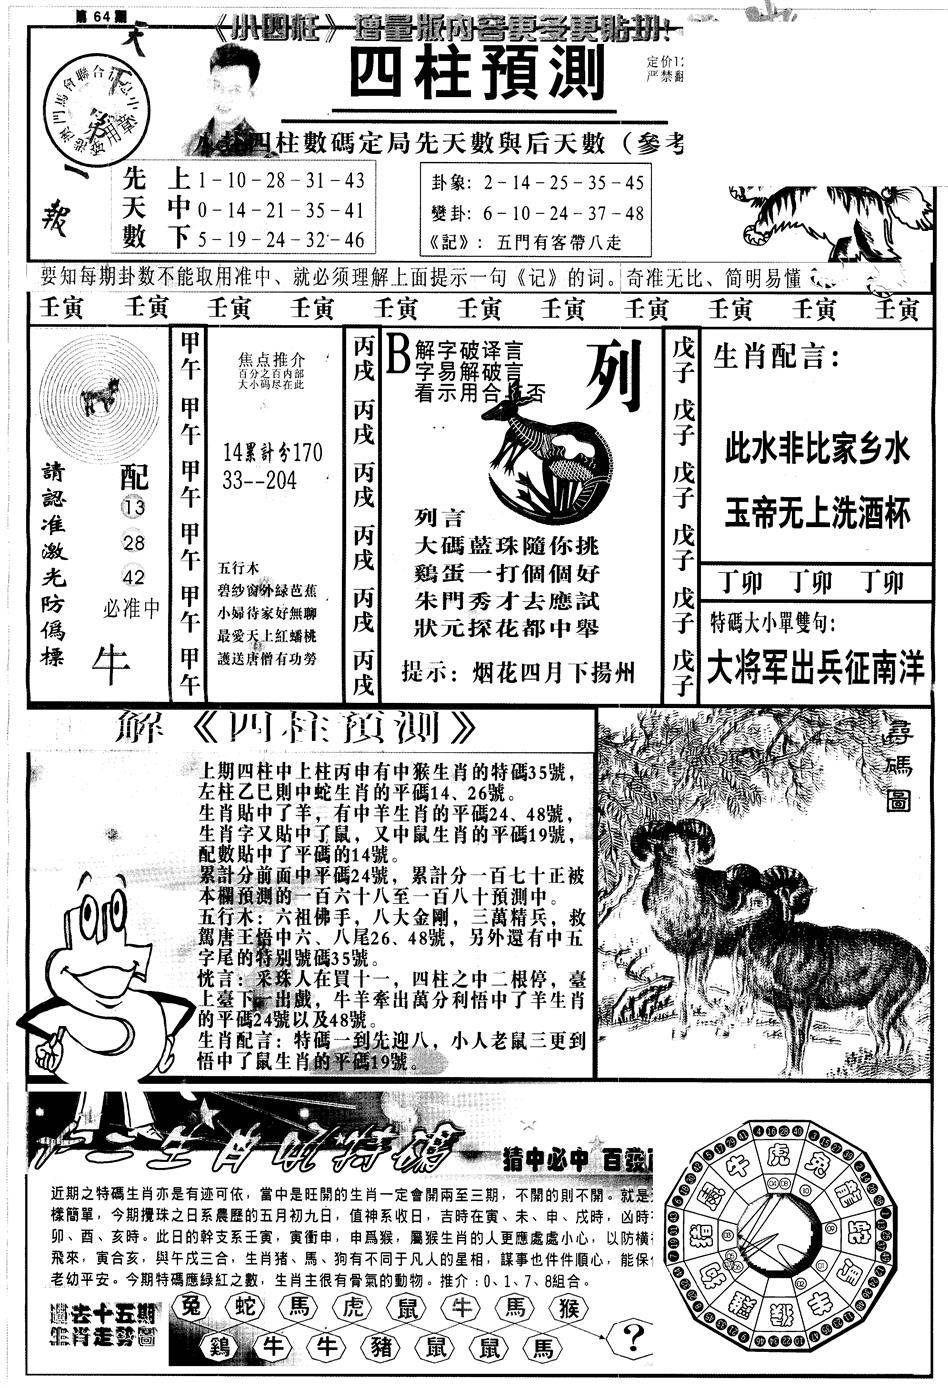 第64期
《小四柱》增量版内容更多更貼切!
四柱預測
定价12
严禁翻
天
一
報
四柱數碼定局先天數與后天數（參考
先天數
上 1-10-28-31-43
中 0-14-21-35-41
下 5-19-24-32-46
卦象: 2-14-25-35-45
變卦: 6-10-24-37-48
《記》: 五門有客帶八走
要知每期卦数不能取用准中、就必须理解上面提示一句《记》的词。奇准无比、简明易懂
壬寅 壬寅 壬寅 壬寅 壬寅 壬寅 壬寅 壬寅 壬寅 壬寅 壬寅
請認准激光防僞標
配
13
28
42
必准中
牛
甲午 甲午 甲午 甲午 甲午 甲午
焦点推介
百分之百内部
大小码尽在此
14累計分170
33--204
五行木
碧纱窗外緑芭蕉
小婦待家好無聊
最愛天上紅蟠桃
護送唐僧有功勞
丙戌 丙戌 丙戌 丙戌 丙戌 丙戌
B
解字破译言
字易解破言
看示用合 否
列
列言
大碼藍珠隨你挑
鷄蛋一打個個好
朱門秀才去應試
狀元探花都中舉
提示: 烟花四月下揚州
戊子 戊子 戊子 戊子 戊子 戊子
生肖配言:
此水非比家乡水
玉帝无上洗酒杯
丁卯 丁卯 丁卯
特碼大小單雙句:
大将军出兵征南洋
解《四柱預測》
上期四柱中上柱丙申有中猴生肖的特碼35號，
左柱乙巳則中蛇生肖的平碼14、26號。
生肖貼中了羊，有中羊生肖的平碼24、48號，
生肖字又貼中了鼠，又中鼠生肖的平碼19號，
配數貼中了平碼的14號。
累計分前面中平碼24號，累計分一百七十正被
本欄預測的一百六十八至一百八十預測中。
五行木: 六祖佛手，八大金剛，三萬精兵，救
駕唐王悟中六、八尾26、48號，另外還有中五
字尾的特别號碼35號。
恍言: 采珠人在買十一，四柱之中二根停，臺
上臺下一出戲，牛羊牽出萬分利悟中了羊生肖
的平碼24號以及48號。
生肖配言: 特碼一到先迎八，小人老鼠三更到
悟中了鼠生肖的平碼19號。
尋碼圖
猜中必中 百發
近期之特碼生肖亦是有迹可依，當中是旺開的生肖一定會開兩至三期，不開的則不開。就是
樣簡單，今期攪珠之日系農歷的五月初九日，值神系收日，吉時在寅、未、申、戌時，凶時
卯、酉、亥時。此日的幹支系壬寅，寅衝申，申爲猴，屬猴生肖的人更應處處小心，以防横
飛來，寅合亥，與午戌三合，生肖猪、馬、狗有不同于凡人的星相，謀事也件件順心，能保
老幼平安。今期特碼應緑紅之數，生肖主很有骨氣的動物。推介:0、1、7、8組合。
過去十五期
生肖走勢圖
兔 蛇 馬 虎 鼠 牛 馬 猴
鷄 牛 牛 豬 鼠 鼠 馬
?
牛 虎 兔 龍 蛇 馬 羊 猴 鷄 狗 豬 鼠